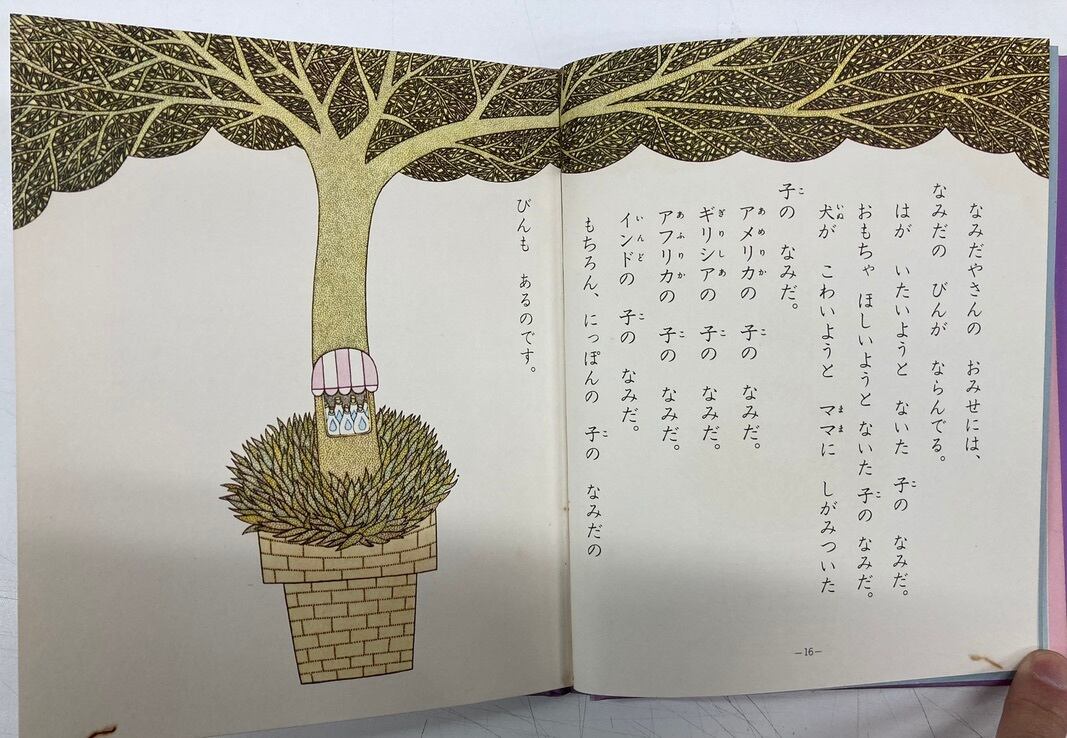 なみだやさんの　おみせには、
なみだの　びんが　ならんでる。
はが　いたいようと　ないた　子の　なみだ。
おもちゃ　ほしいようと　ないた　子の　なみだ。
犬が　こわいようと　ママに　しがみついた
子の　なみだ。
アメリカの　子の　なみだ。
ギリシアの　子の　なみだ。
アフリカの　子の　なみだ。
インドの　子の　なみだ。
もちろん、にっぽんの　子の　なみだの
びんも　あるのです。
—16—